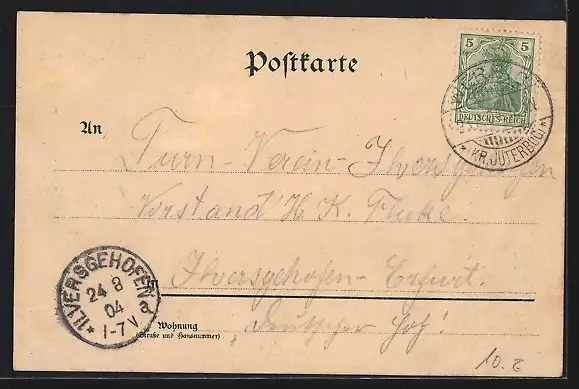 Postkarte
5 5
DEUTSCHES REICH
* KR. JÜTERBOG *
An
Turn-Verein-Ilversgehofen
Vorstand H. K. Fluke.
Ilversgehofen-Erfurt.
* ILVERSGEHOFEN
24 8
04
1-7V
Wohnung
(Straße und Hausnummer)
Deutscher Hof!
10.2